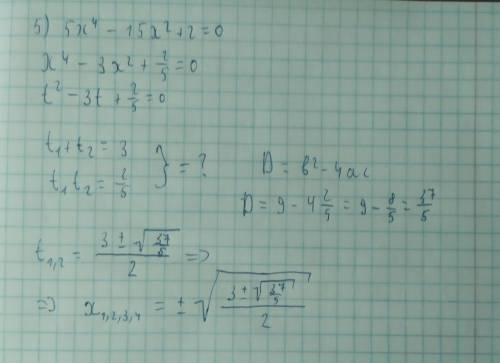 5) 5x⁴ - 15x² + 2 = 0
x⁴ - 3x² + 2/5 = 0
t² - 3t + 2/5 = 0
t₁ + t₂ = 3
t₁ t₂ = 2/5 } = ?
D = b² - 4ac
D = 9 - 4 2/5 = 9 - 8/5 = 37/5
t₁,₂ = (3 ± √(37/5))/2 =>
=> x₁,₂,₃,₄ = ± √((3 ± √(37/5))/2)